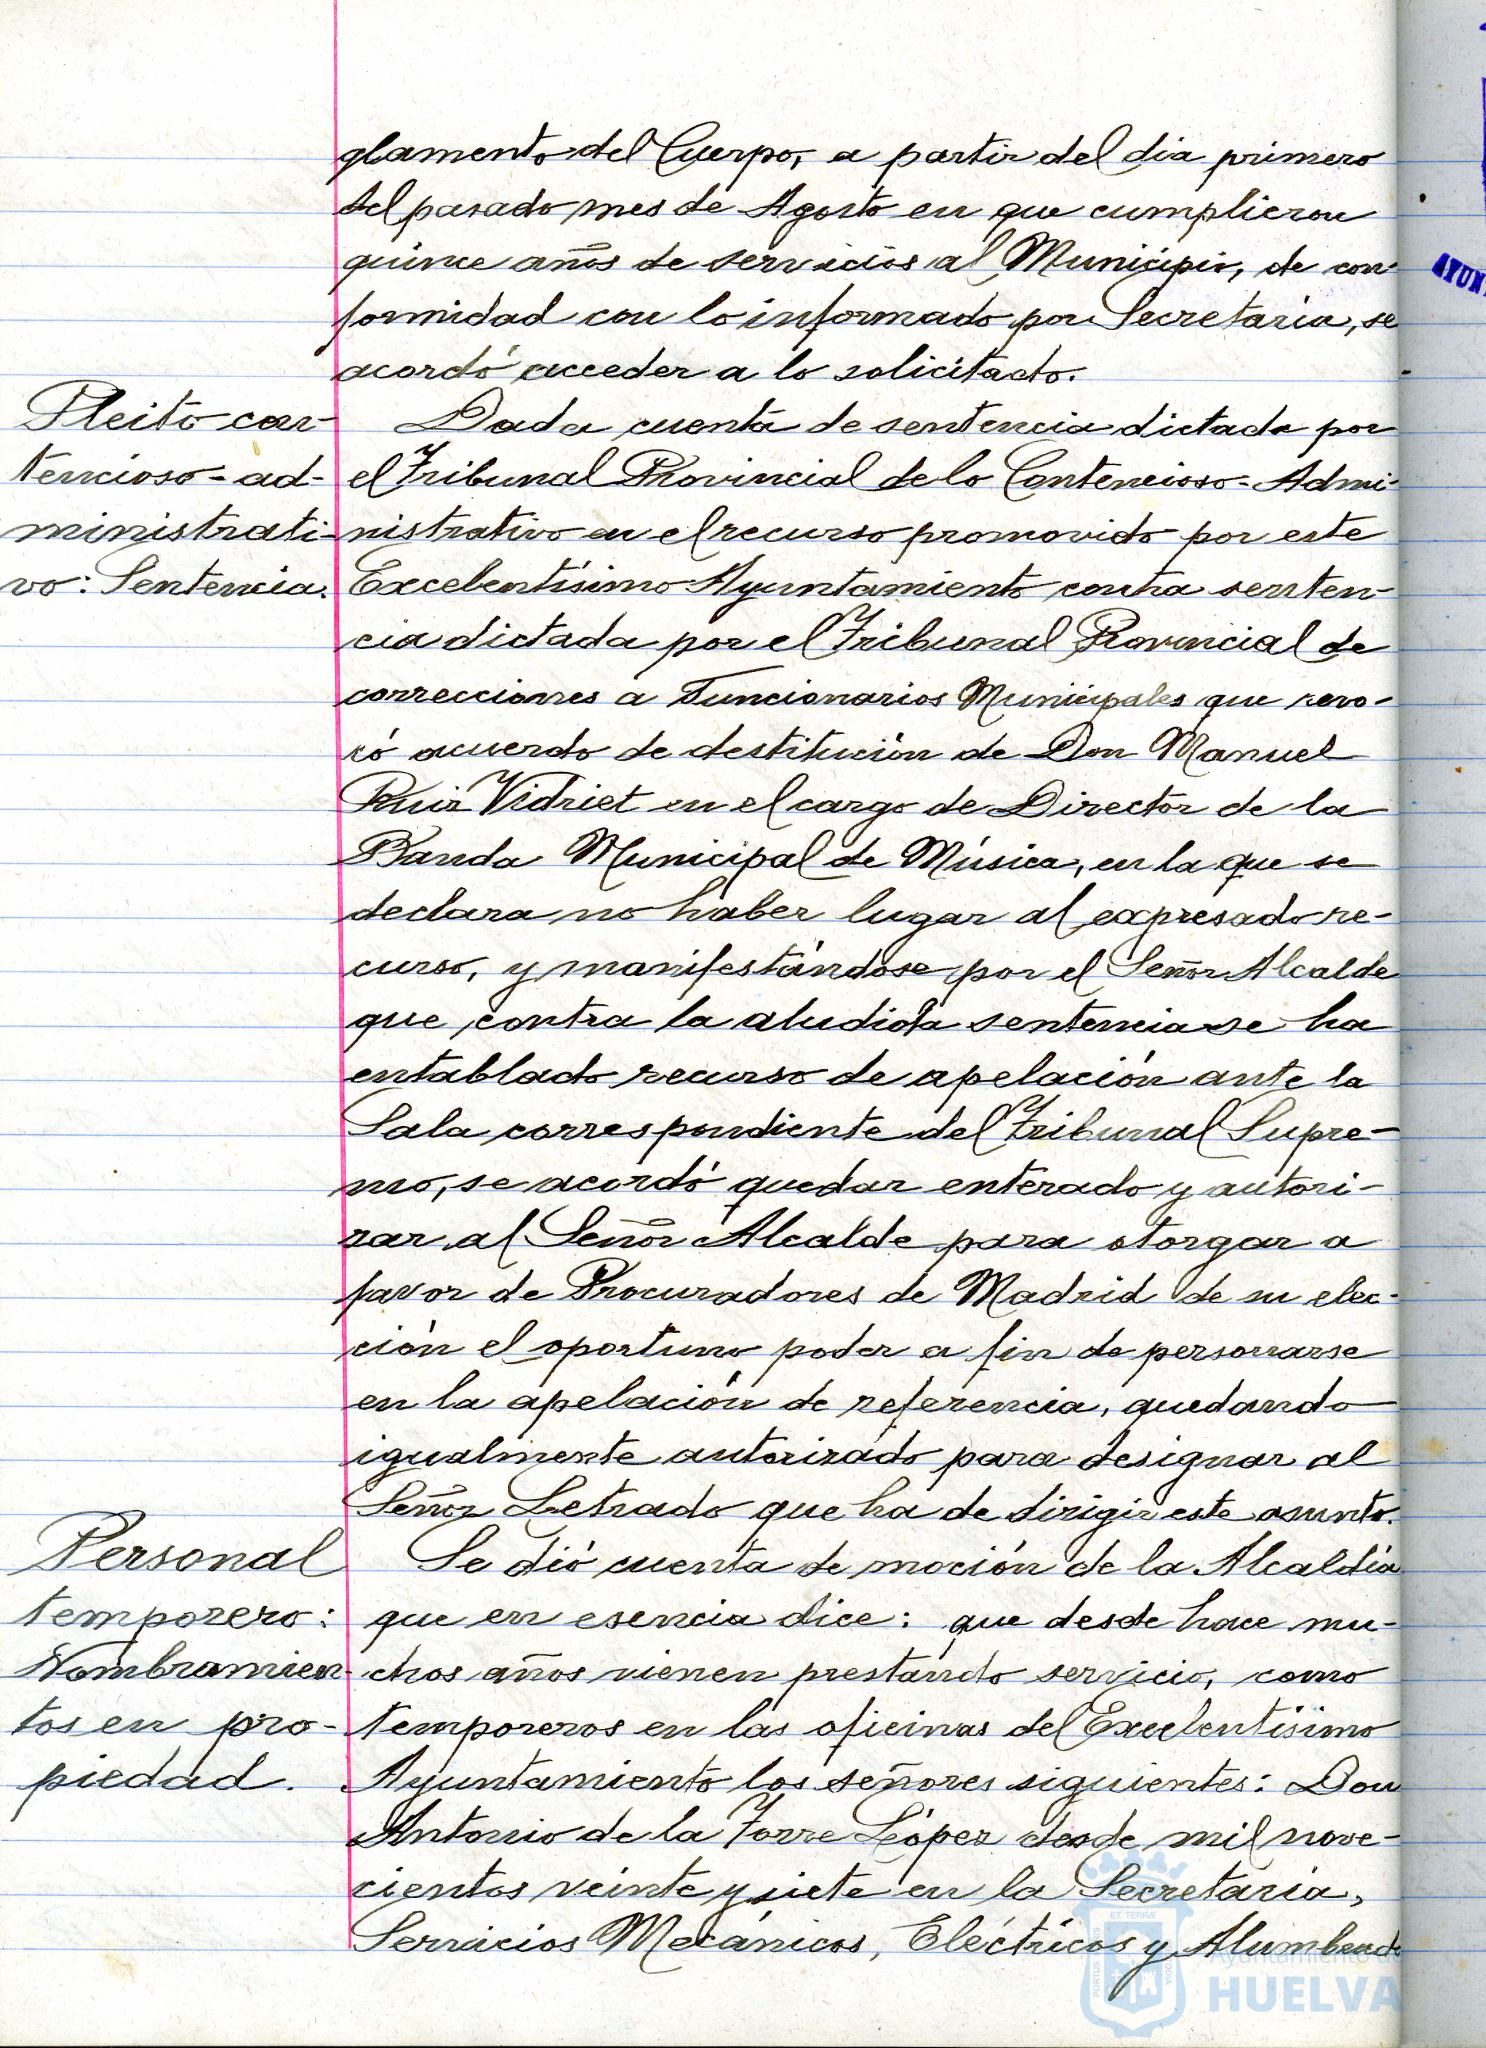 glamento del Cuerpo, a partir del dia primero
del pasado mes de Agosto en que cumplieron
quince años de servicios al Municipio, de con-
formidad con lo informado por Secretaria, se
acordó acceder a lo solicitado.
Pleito con-
tencioso-ad-
ministrati-
vo: Sentencia.
Dada cuenta de sentencia dictada por
el Tribunal Provincial de lo Contencioso-Admi-
nistrativo en el recurso promovido por este
Excelentísimo Ayuntamiento contra senten-
cia dictada por el Tribunal Provincial de
correcciones a Funcionarios Municipales que revo-
có acuerdo de destitución de Don Manuel
Ruiz Vidriet en el cargo de Director de la
Banda Municipal de Música, en la que se
declara no haber lugar al expresado re-
curso, y manifestándose por el Señor Alcalde
que contra la aludida sentencia se ha
entablado recurso de apelación ante la
Sala correspondiente del Tribunal Supre-
mo, se acordó quedar enterado y autori-
zar al Señor Alcalde para otorgar a
favor de Procuradores de Madrid de su elec-
ción el oportuno poder a fin de personarse
en la apelación de referencia, quedando
igualmente autorizado para designar al
Señor Letrado que ha de dirigir este asunto.
Personal
temporero:
Nombramien-
tos en pro-
piedad.
Se dió cuenta de moción de la Alcaldía
que en esencia dice: que desde hace mu-
chos años vienen prestando servicio, como
temporeros en las oficinas del Excelentísimo
Ayuntamiento los señores siguientes: Don
Antonio de la Torre López desde mil nove-
cientos veinte y siete en la Secretaría,
Servicios Mecánicos, Eléctricos y Alumbrado
Ayuntamiento de
HUELVA
AYUN